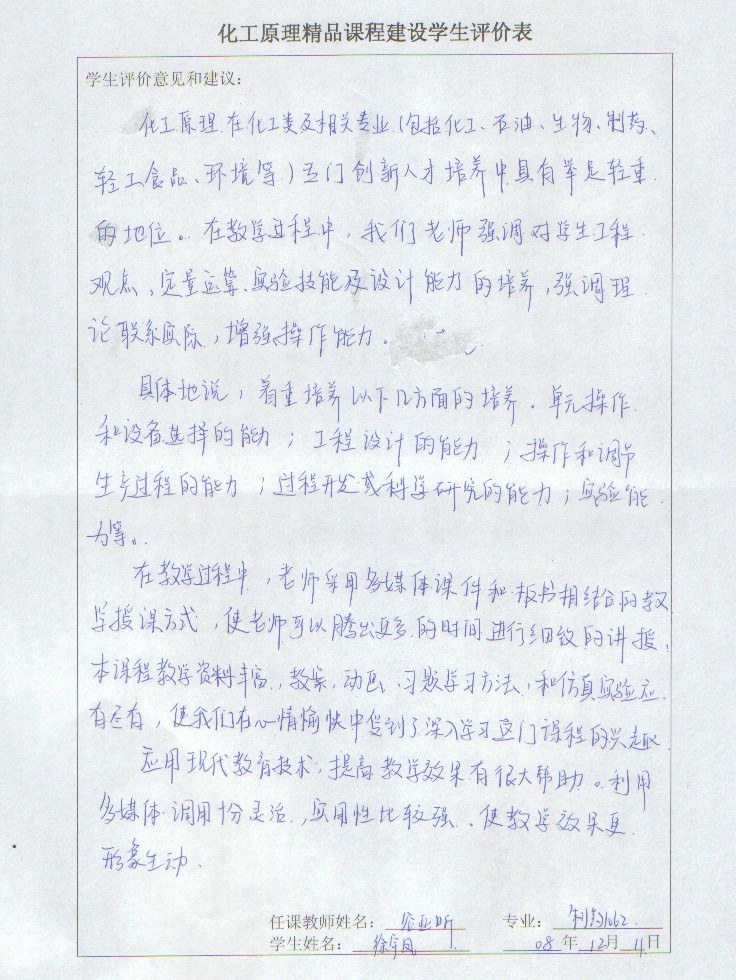 化工原理精品课程建设学生评价表
学生评价意见和建议：
化工原理在化工类及相关专业（包括化工、石油、生物、制药、
轻工食品、环境等）五门创新人才培养中具有举足轻重
的地位。在教学过程中，我们老师强调对学生工程
观点、定量运算、实验技能及设计能力的培养，强调理
论联系实际，增强操作能力。
具体地说，着重培养以下几方面的培养．单元操作
和设备选择的能力；工程设计的能力；操作和调节
生产过程的能力；过程开发或科学研究的能力；实验能
力等。
在教学过程中，老师采用多媒体课件和板书相结合的教
学授课方式，使老师可以腾出更多的时间进行细致的讲授，
本课程教学资料丰富，教案，动画，习题学习方法，和仿真实验应
有尽有，使我们在心情愉快中受到了深入学习这门课程的兴趣
应用现代教育技术，提高教学效果有很大帮助。利用
多媒体调用十份灵活，实用性比较强．使教学效果更
形象生动．
任课教师姓名： 专业：制药1062
学生姓名： 08年12月11日